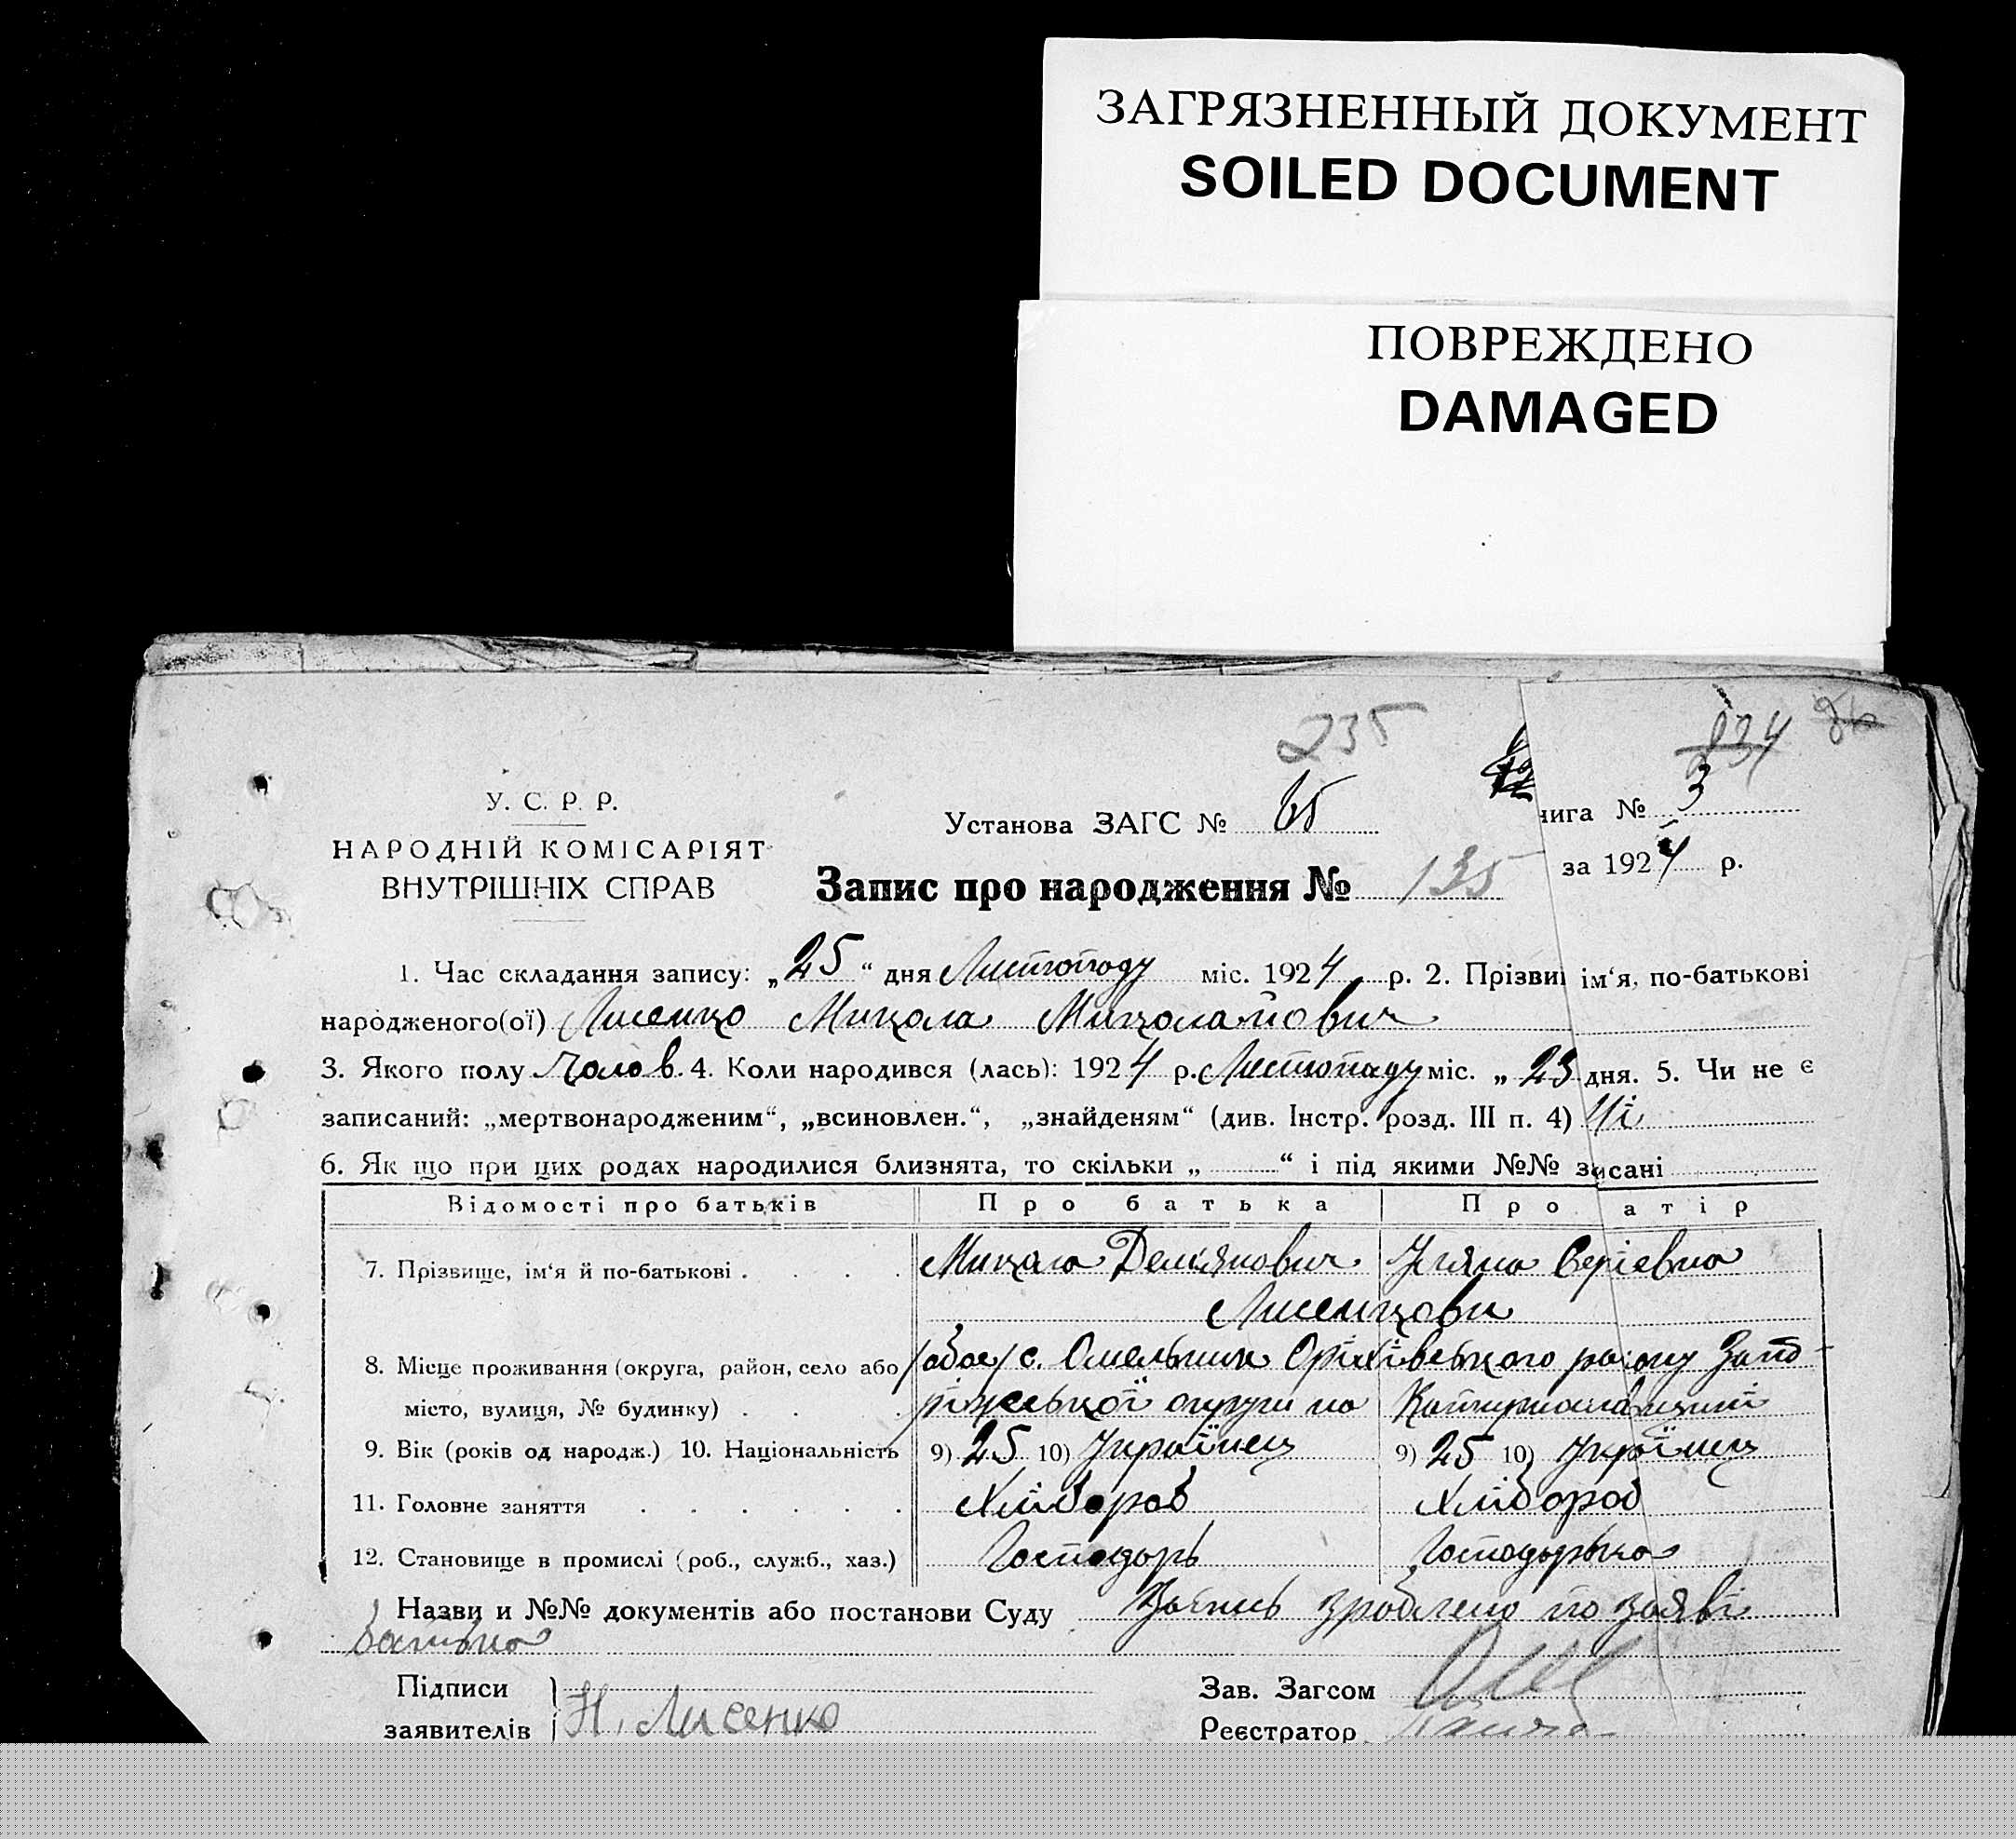 ЗАГРЯЗНЕННЫЙ ДОКУМЕНТ
SOILED DOCUMENT
ПОВРЕЖДЕНО
DAMAGED
235
У. С. Р. Р.
НАРОДНІЙ КОМІСАРІЯТ
ВНУТРІШНІХ СПРАВ
Установа ЗАГС № 65
нига № 3
за 1924 р.
Запис про народження № 135
1. Час складання запису: „25“ дня Листопаду міс. 1924 р. 2. Прізви ім‘я, по-батькові
народженого(ої) Лисенко Микола Миколайович
3. Якого полу чолов. 4. Коли народився (лась): 1924 р. Листопаду міс. „23 дня. 5. Чи не є
записаний: „мертвонародженим“, „всиновлен.“, „знайденям“ (див. Інстр. розд. III п. 4) Ні
6. Як що при цих родах народилися близнята, то скільки „ “ і під якими №№ зисані
Відомості про батьків Про батька Про атір
7. Прізвище, ім‘я й по-батькові . . . . Микола Демянович Уляна Сергіевна
Лисенкови
8. Місце проживання (округа, район, село або /обое/ с. Омельник Оріхівського району Запо-
місто, вулиця, № будинку) . . . ріжської округи на Катеринославщині
9. Вік (років од народж.) 10. Національність 9) 25 10) Українец 9) 25 10) Українец
11. Головне заняття . . . . . . Хлібороб Хлібороб
12. Становище в промислі (роб., служб., хаз.) Господорь Господорька
Назви и №№ документів або постанови Суду Запись зроблено по заяві
батька
Підписи
заявителів Н. Лисенко
Зав. Загсом
Реєстратор